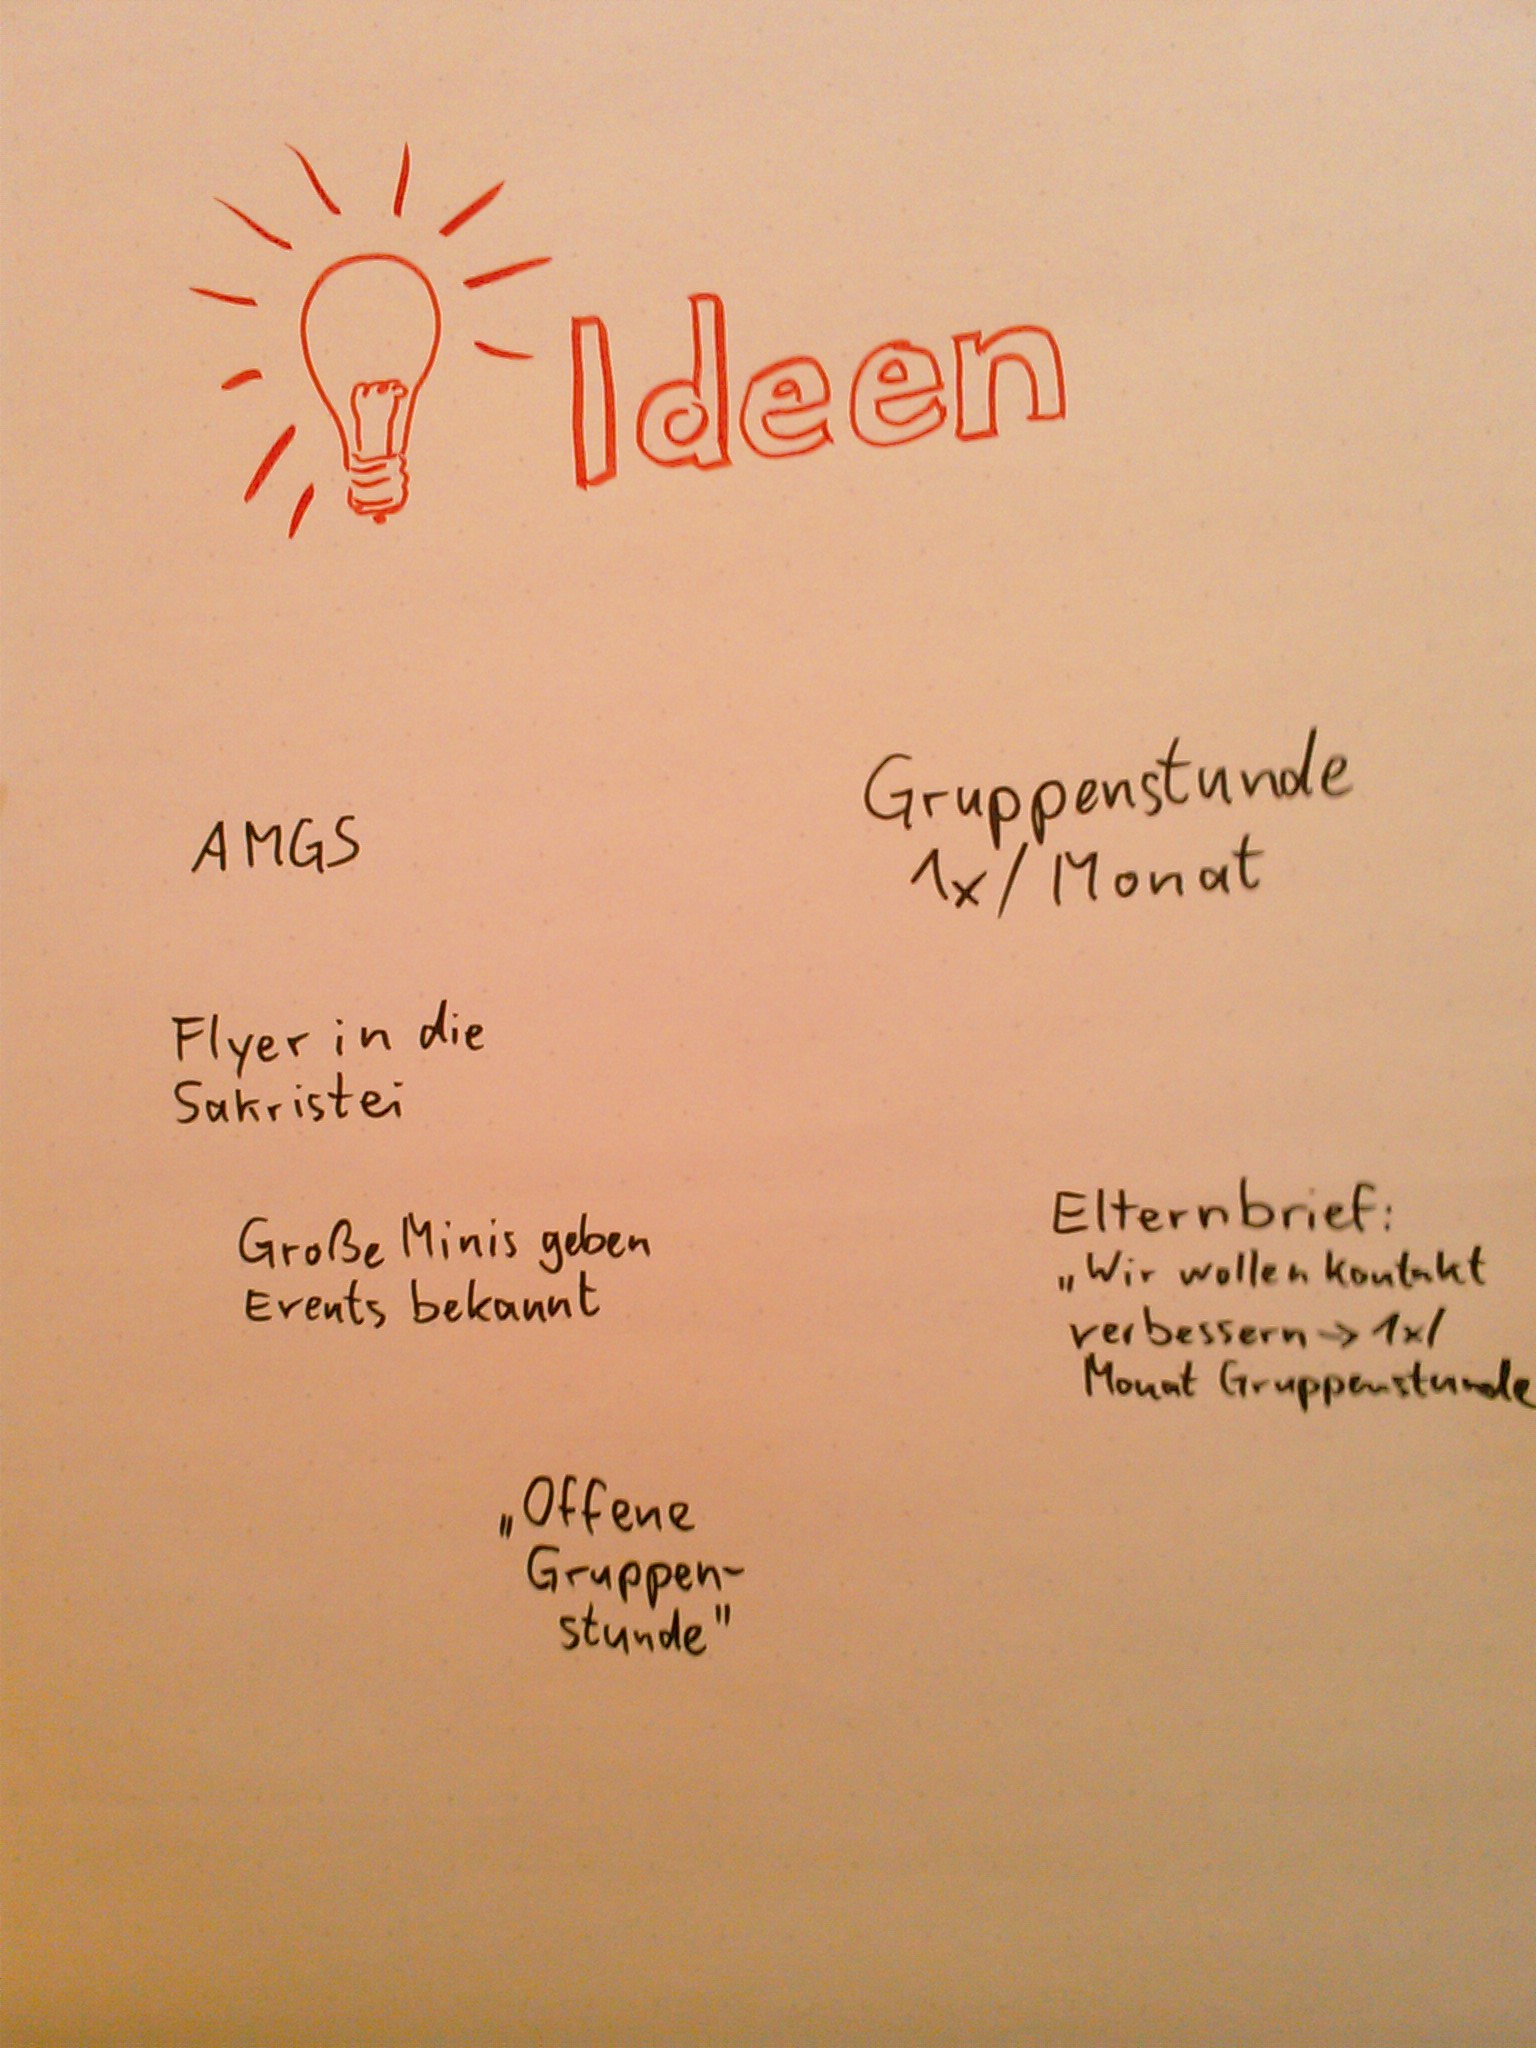 Ideen
AMGS
Gruppenstunde
1x/Monat
Flyer in die
Sakristei
Große Minis geben
Events bekannt
Elternbrief:
„Wir wollen Kontakt
verbessern → 1x/
Monat Gruppenstunde
„Offene
Gruppen-
stunde"